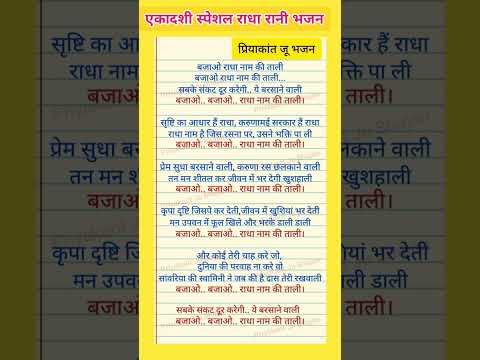 एकादशी स्पेशल राधा रानी भजन
प्रियाकांत जू भजन
बजाओ राधा नाम की ताली
बजाओ राधा नाम की ताली...
सबके संकट दूर करेगी.. ये बरसाने वाली
बजाओ.. बजाओ.. राधा नाम की ताली।
सृष्टि का आधार हैं राधा, करुणामई सरकार हैं राधा
राधा नाम है जिस रसना पर, उसने भक्ति पा ली
बजाओ.. बजाओ.. राधा नाम की ताली।
प्रेम सुधा बरसाने वाली, करुणा रस छलकाने वाली
तन मन शीतल कर जीवन में भर देगी खुशहाली
बजाओ.. बजाओ.. राधा नाम की ताली।
कृपा दृष्टि जिसपे कर देती,जीवन में खुशियां भर देती
मन उपवन में फूल खिले और भरके डाली डाली
बजाओ.. बजाओ.. राधा नाम की ताली।
और कोई तेरी चाह करे जो,
दुनिया की परवाह ना करे वो
सांवरिया की स्वामिनी ने जब की है दास तेरी रखवाली
बजाओ.. बजाओ.. राधा नाम की ताली।
सबके संकट दूर करेगी.. ये बरसाने वाली
बजाओ.. बजाओ.. राधा नाम की ताली।